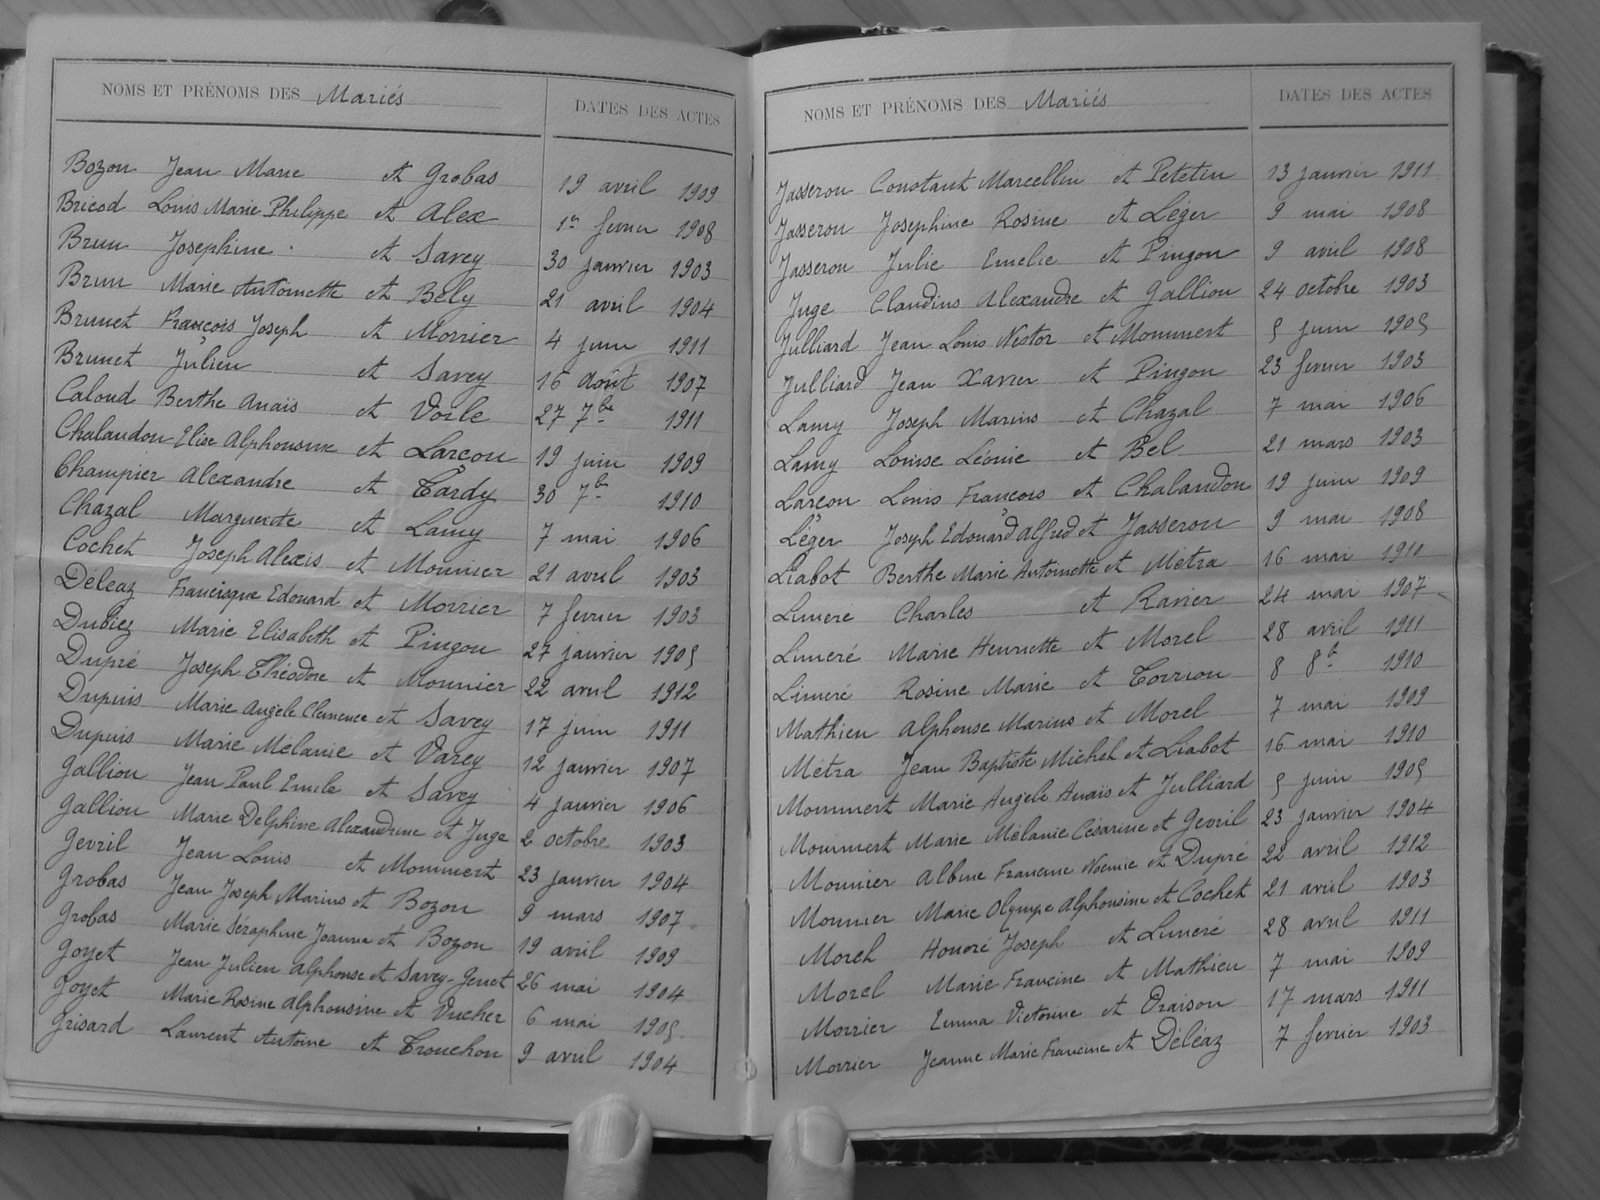 NOMS ET PRÉNOMS DES Mariés DATES DES ACTES
Bozon Jean Marie et Grobas 19 avril 1909
Bricod Louis Marie Philippe et Alex 1er février 1908
Brun Josephine et Savey 30 janvier 1903
Brun Marie Antoinette et Bély 21 avril 1904
Brunet François Joseph et Morrier 4 juin 1911
Brunet Julien et Savey 16 août 1907
Caloud Berthe Anaïs et Voile 27 7bre 1911
Chalandon Elise Alphonsine et Larçon 19 juin 1909
Champier Alexandre et Tardy 30 7b 1910
Chazal Marguerite et Lamy 7 mai 1906
Cochet Joseph Alexis et Mounier 21 avril 1903
Déléaz Francisque Edouard et Morrier 7 fevrier 1903
Dubiez Marie Elisabeth et Pingon 27 janvier 1905
Dupré Joseph Théodore et Mounier 22 avril 1912
Dupuis Marie Angele Clemence et Savey 17 juin 1911
Dupuis Marie Mélanie et Varey 12 janvier 1907
Gallion Jean Paul Emile et Savey 4 janvier 1906
Gallion Marie Delphine Alexandrine et Juge 2 octobre 1903
Gevril Jean Louis et Mommert 23 janvier 1904
Grobas Jean Joseph Marius et Bozon 9 mars 1907
Grobas Marie Séraphine Joanna et Bozon 19 avril 1909
Goyet Jean Julien Alphonse et Savey-Genet 26 mai 1904
Goyet Marie Rosine Alphonsine et Vucher 6 mai 1905
Grisard Laurent Antoine et Trouchon 9 avril 1904
NOMS ET PRÉNOMS DES Mariés DATES DES ACTES
Jasseron Constant Marcellin et Petetin 13 janvier 1911
Jasseron Josephine Rosine et Léger 9 mai 1908
Jasseron Julie Emelie et Pingon 9 avril 1908
Juge Claudius Alexandre et Gallion 24 octobre 1903
Julliard Jean Louis Nestor et Mommert 5 juin 1905
Julliard Jean Xavier et Pingon 23 fevrier 1903
Lamy Joseph Marius et Chazal 7 mai 1906
Lamy Louise Léonie et Bel 21 mars 1903
Larçon Louis François et Chalandon 19 juin 1909
Léger Joseph Edouard Alfred et Jasseron 9 mai 1908
Liabot Berthe Marie Antoinette et Métra 16 mai 1910
Limere Charles et Ravier 24 mai 1907
Limeré Marie Henriette et Morel 28 avril 1911
Limeré Rosine Marie et Torrion 8 8b 1910
Mathieu Alphonse Marius et Morel 7 mai 1909
Métra Jean Baptiste Michel et Liabot 16 mai 1910
Mommert Marie Angele Anaïs et Julliard 5 juin 1905
Mommert Marie Mélanie Césarine et Gevril 23 janvier 1904
Mounier Albine Francine Noémie et Dupré 22 avril 1912
Mounier Marie Olympe Alphonsine et Cochet 21 avril 1903
Morel Honoré Joseph et Limeré 28 avril 1911
Morel Marie Francine et Mathieu 7 mai 1909
Morrier Emma Victorine et Oraison 17 mars 1911
Morrier Jeanne Marie Francine et Déléaz 7 fevrier 1903